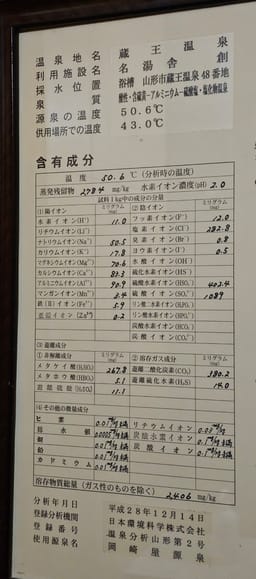 温泉地名 蔵王温泉
利用施設名 名湯舎 創
採水位置 浴槽 山形市蔵王温泉48番地
泉質 酸性・含硫黄-アルミニウム-硫酸塩・塩化物温泉
源泉の温度 50.6℃
供用場所での温度 43.0℃
含有成分
温度 50.6℃(分析時の温度)
蒸発残留物 2784 mg/kg 水素イオン濃度(pH) 2.0
試料1kg中の成分の分量
(1)陽イオン ミリグラム(mg) (2)陰イオン ミリグラム(mg)
水素イオン(H⁺) 11.0 フッ素イオン(F⁻) 12.0
リチウムイオン(Li⁺) 塩素イオン(Cl⁻) 282.8
ナトリウムイオン(Na⁺) 50.5 臭素イオン(Br⁻) 0.8
カリウムイオン(K⁺) 17.8 ヨウ素イオン(I⁻) 0.5
マグネシウムイオン(Mg²⁺) 70.6 水酸イオン(OH⁻)
カルシウムイオン(Ca²⁺) 83.3 硫化水素イオン(HS⁻)
アルミニウムイオン(Al³⁺) 90.9 硫酸水素イオン(HSO₄⁻) 402.4
マンガンイオン(Mn²⁺) 2.4 硫酸イオン(SO₄²⁻) 1089
鉄(Ⅱ)イオン(Fe²⁺) 5.9 リン酸水素イオン(HPO₄²⁻)
亜鉛イオン(Zn²⁺) 0.2 リン酸二水素イオン(H₂PO₄⁻)
炭酸水素イオン(HCO₃⁻)
炭酸イオン(CO₃²⁻)
(3)遊離成分
①非解離成分 ミリグラム(mg) ②溶存ガス成分 ミリグラム(mg)
メタケイ酸(H₂SiO₃) 267.8 遊離二酸化炭素(CO₂) 380.2
メタホウ酸(HBO₂) 5.1 遊離硫化水素(H₂S) 14.0
遊離硫酸(H₂SO₄) 11.1
(4)その他の微量成分
ヒ素 リチウムイオン
総水銀 炭酸水素イオン
銅 炭酸イオン
鉛
カドミウム
溶存物質総量(ガス性のものを除く) 2406 mg/kg
分析年月日 平成28年12月14日
登録分析機関 日本環境科学株式会社
登録番号 温泉分析山形第2号
使用源泉名 岡崎屋源泉